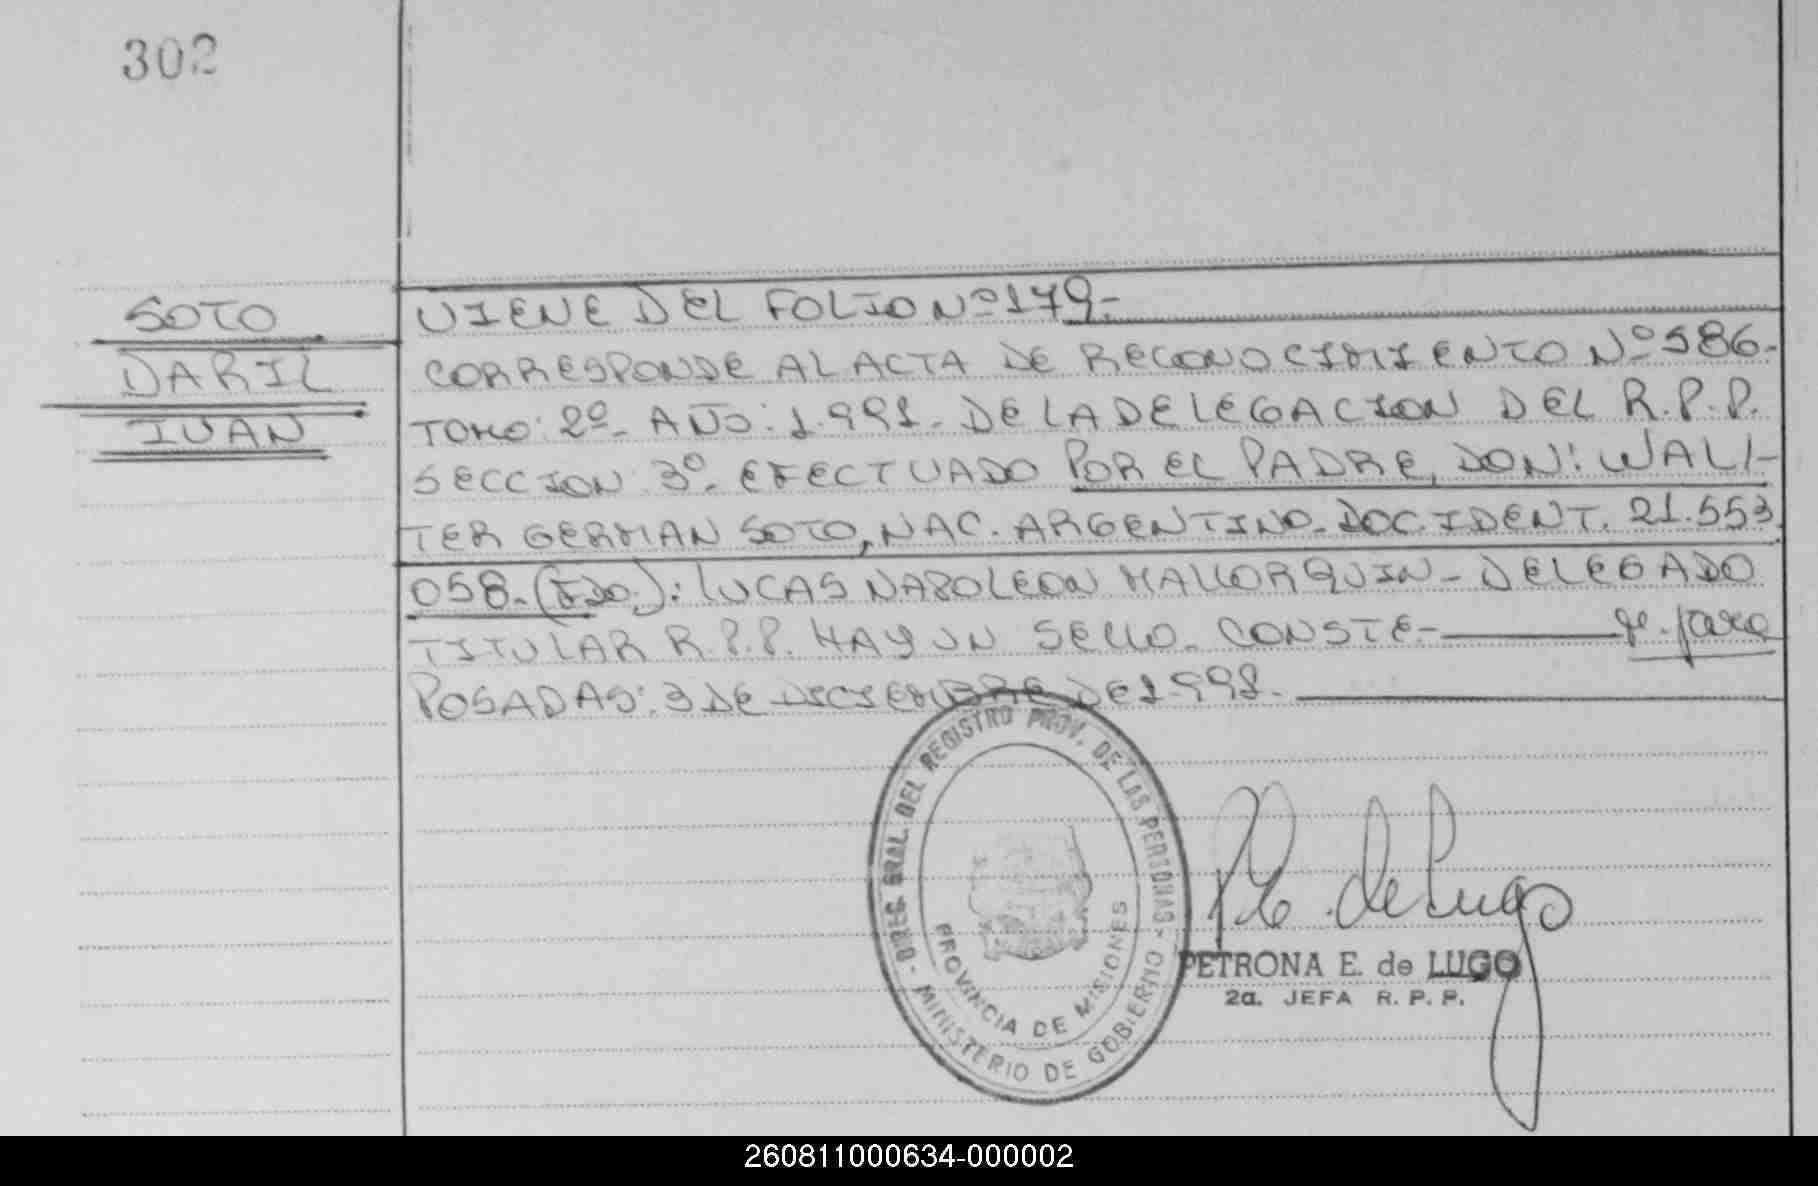 302
SOTO
DARIL
IVAN
VIENE DEL FOLIO Nº 179.-
CORRESPONDE AL ACTA DE RECONOCIMIENTO Nº 586.-
TOMO: 2º. AÑO: 1.991. DE LA DELEGACION DEL R.P.P.
SECCION 3º. EFECTUADO POR EL PADRE, DON: WALI-
TER GERMAN SOTO, NAC. ARGENTINO. DOC. IDENT. 21.553.
058.-(FDO.): LUCAS NAPOLEON MALLORQUIN - DELEGADO
TITULAR R.P.P. HAY UN SELLO. CONSTE.-
POSADAS: 3 DE DICIEMBRE DE 1.991.
DIREC. GRAL. DEL REGISTRO PROV. DE LAS PERSONAS - MINISTERIO DE GOBIERNO
PROVINCIA DE MISIONES
P E. de Lugo
PETRONA E. de LUGO
2a. JEFA R. P. P.
260811000634-000002